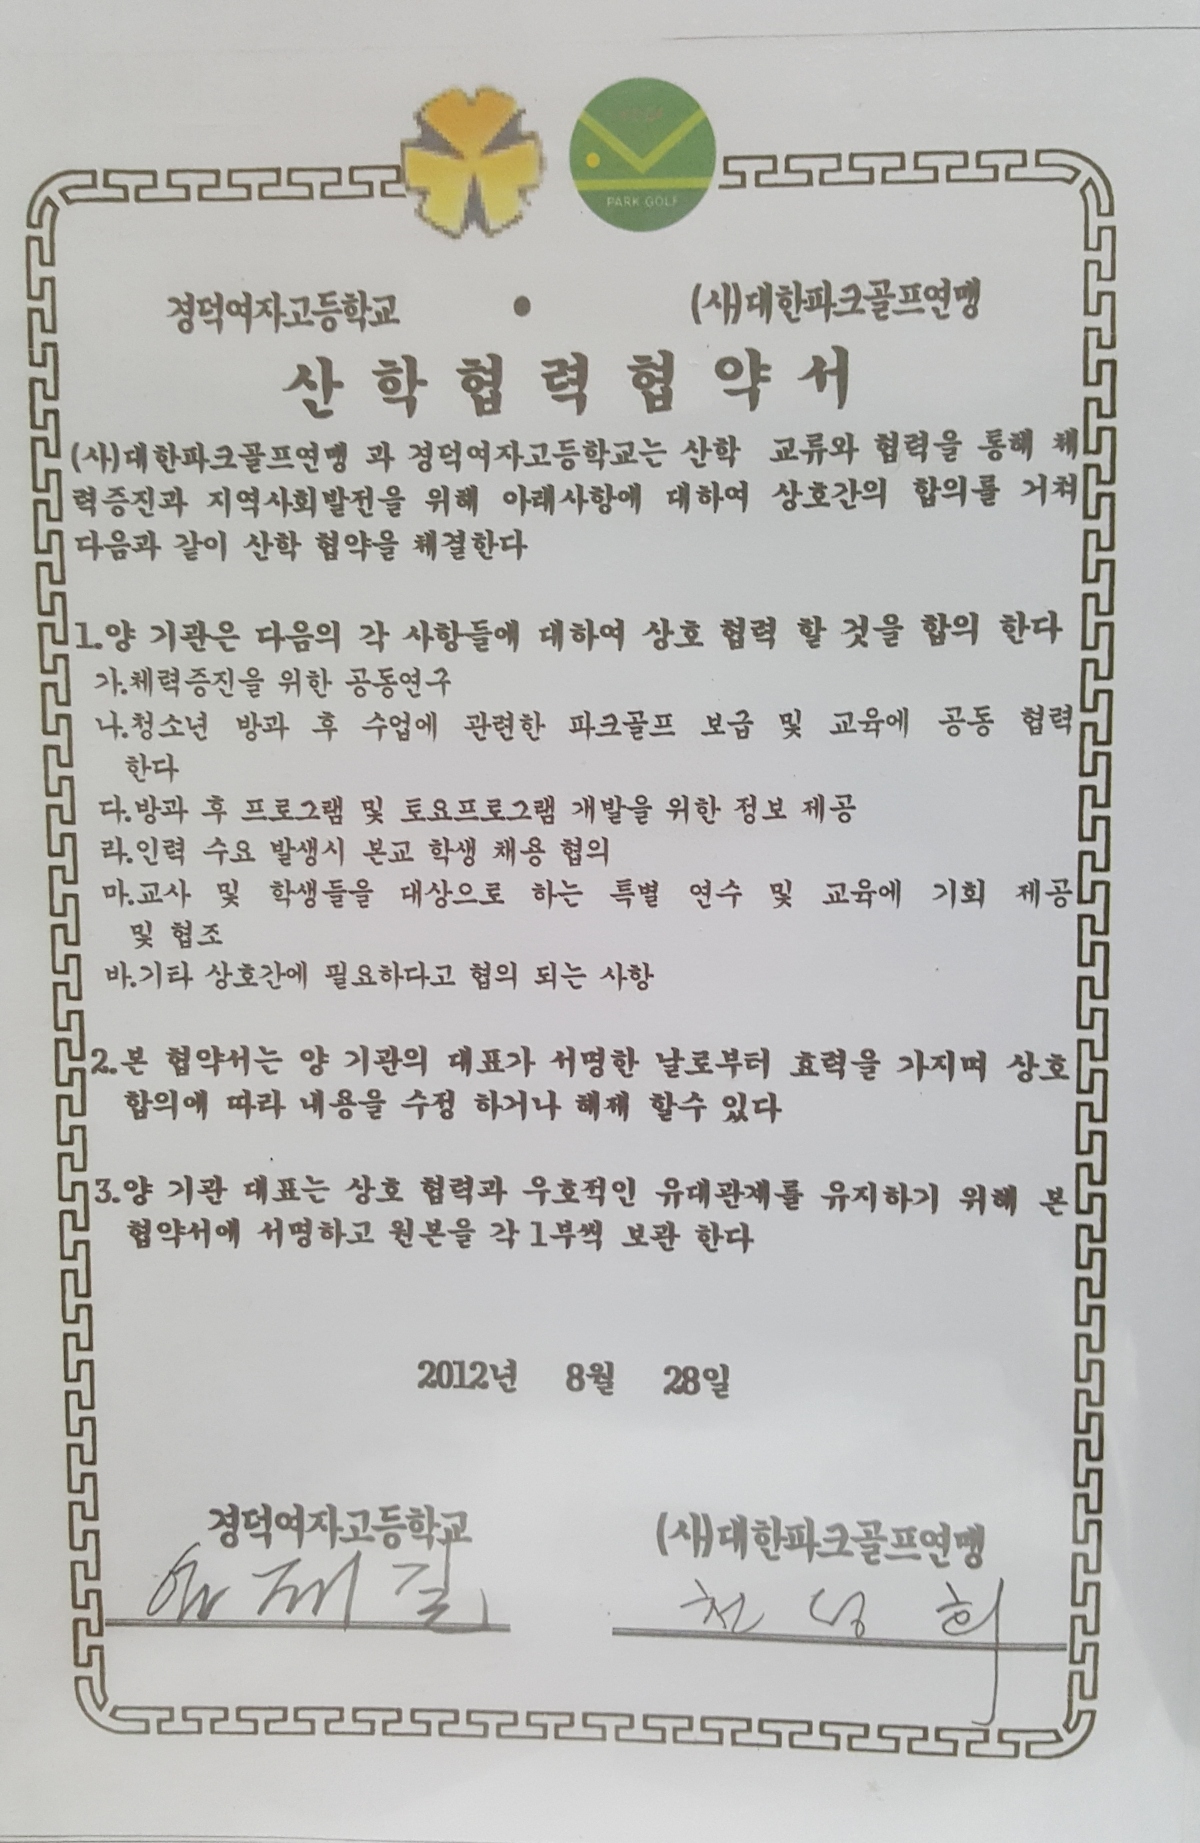 PARK GOLF
경덕여자고등학교 • (사)대한파크골프연맹
산학협력협약서
(사)대한파크골프연맹 과 경덕여자고등학교는 산학 교류와 협력을 통해 체
력증진과 지역사회발전을 위해 아래사항에 대하여 상호간의 합의를 거쳐
다음과 같이 산학 협약을 체결한다
1.양 기관은 다음의 각 사항들에 대하여 상호 협력 할 것을 합의 한다
가.체력증진을 위한 공동연구
나.청소년 방과 후 수업에 관련한 파크골프 보급 및 교육에 공동 협력
한다
다.방과 후 프로그램 및 토요프로그램 개발을 위한 정보 제공
라.인력 수요 발생시 본교 학생 채용 협의
마.교사 및 학생들을 대상으로 하는 특별 연수 및 교육에 기회 제공
및 협조
바.기타 상호간에 필요하다고 협의 되는 사항
2.본 협약서는 양 기관의 대표가 서명한 날로부터 효력을 가지며 상호
합의에 따라 내용을 수정 하거나 해제 할수 있다
3.양 기관 대표는 상호 협력과 우호적인 유대관계를 유지하기 위해 본
협약서에 서명하고 원본을 각 1부씩 보관 한다
2012년 8월 28일
경덕여자고등학교 (사)대한파크골프연맹
천성희